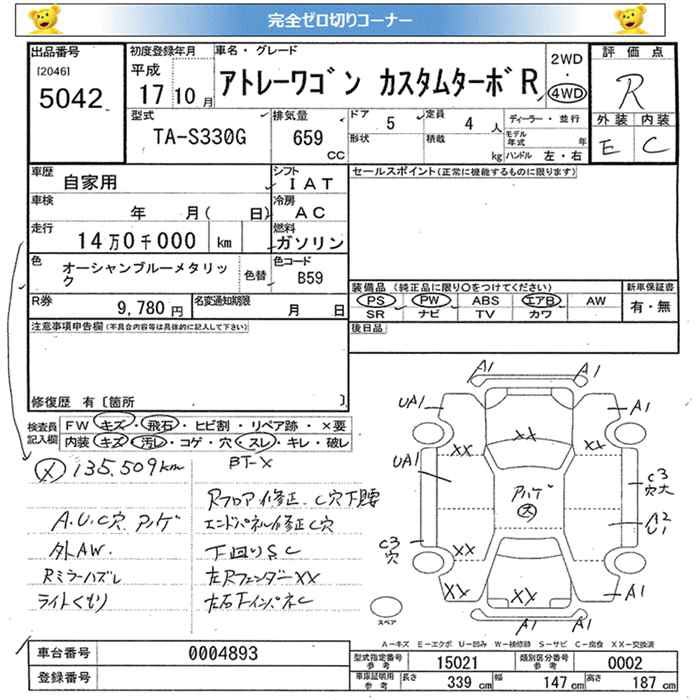 完全ゼロ切りコーナー
出品番号
[2046]
5042
初度登録年月
平成
17 10月
車名・グレード
アトレーワゴン カスタムターボR
2WD
・
4WD
評価点
R
外装 内装
E C
型式
TA-S330G
排気量
659
CC
ドア 5
定員 4 人
形状
積載 kg
ディーラー・並行
モデル年式 年
ハンドル 左・右
車歴
自家用
シフト
IAT
車検
年 月( 日)
冷房
AC
走行
14万0千000 km
燃料
ガソリン
色
オーシャンブルーメタリック
色替
色コード
B59
R券
9,780円
名変通知期限
月 日
セールスポイント(正常に機能するものに限ります)
装備品(純正品に限り○をつけてください)
PS PW ABS エアB AW
SR ナビ TV カワ
新車保証書
有・無
後日品
注意事項申告欄(不具合内容等は具体的に記入して下さい)
修復歴 有〔箇所 〕
検査員記入欄
FW キズ・飛石・ヒビ割・リペア跡・×要
内装 キズ・汚レ・コゲ・穴・スレ・キレ・破レ
メ 135,509km
BT-X
Rフロア修正、C穴下腰
A.U.C穴 アゲ
エンドパネル修正C穴
外AW.
下回りSC
Rミラーハズレ
左Rフェンダー XX
ライトくもり
左右FインパネC
A1 A1
UA1 A1
XX XX XX
UA1
C3
穴大
A2
U1
C3
穴
XX
XX XX
A1
A1 A1
スペア
A―キズ E―エクボ U―凹み W―補修跡 S―サビ C―腐食 XX―交換済
車台番号 0004893
登録番号
型式指定番号
参考
15021
類別区分番号
参考
0002
車庫証明用
参考
長さ 339 cm 幅 147 cm 高さ 187 cm